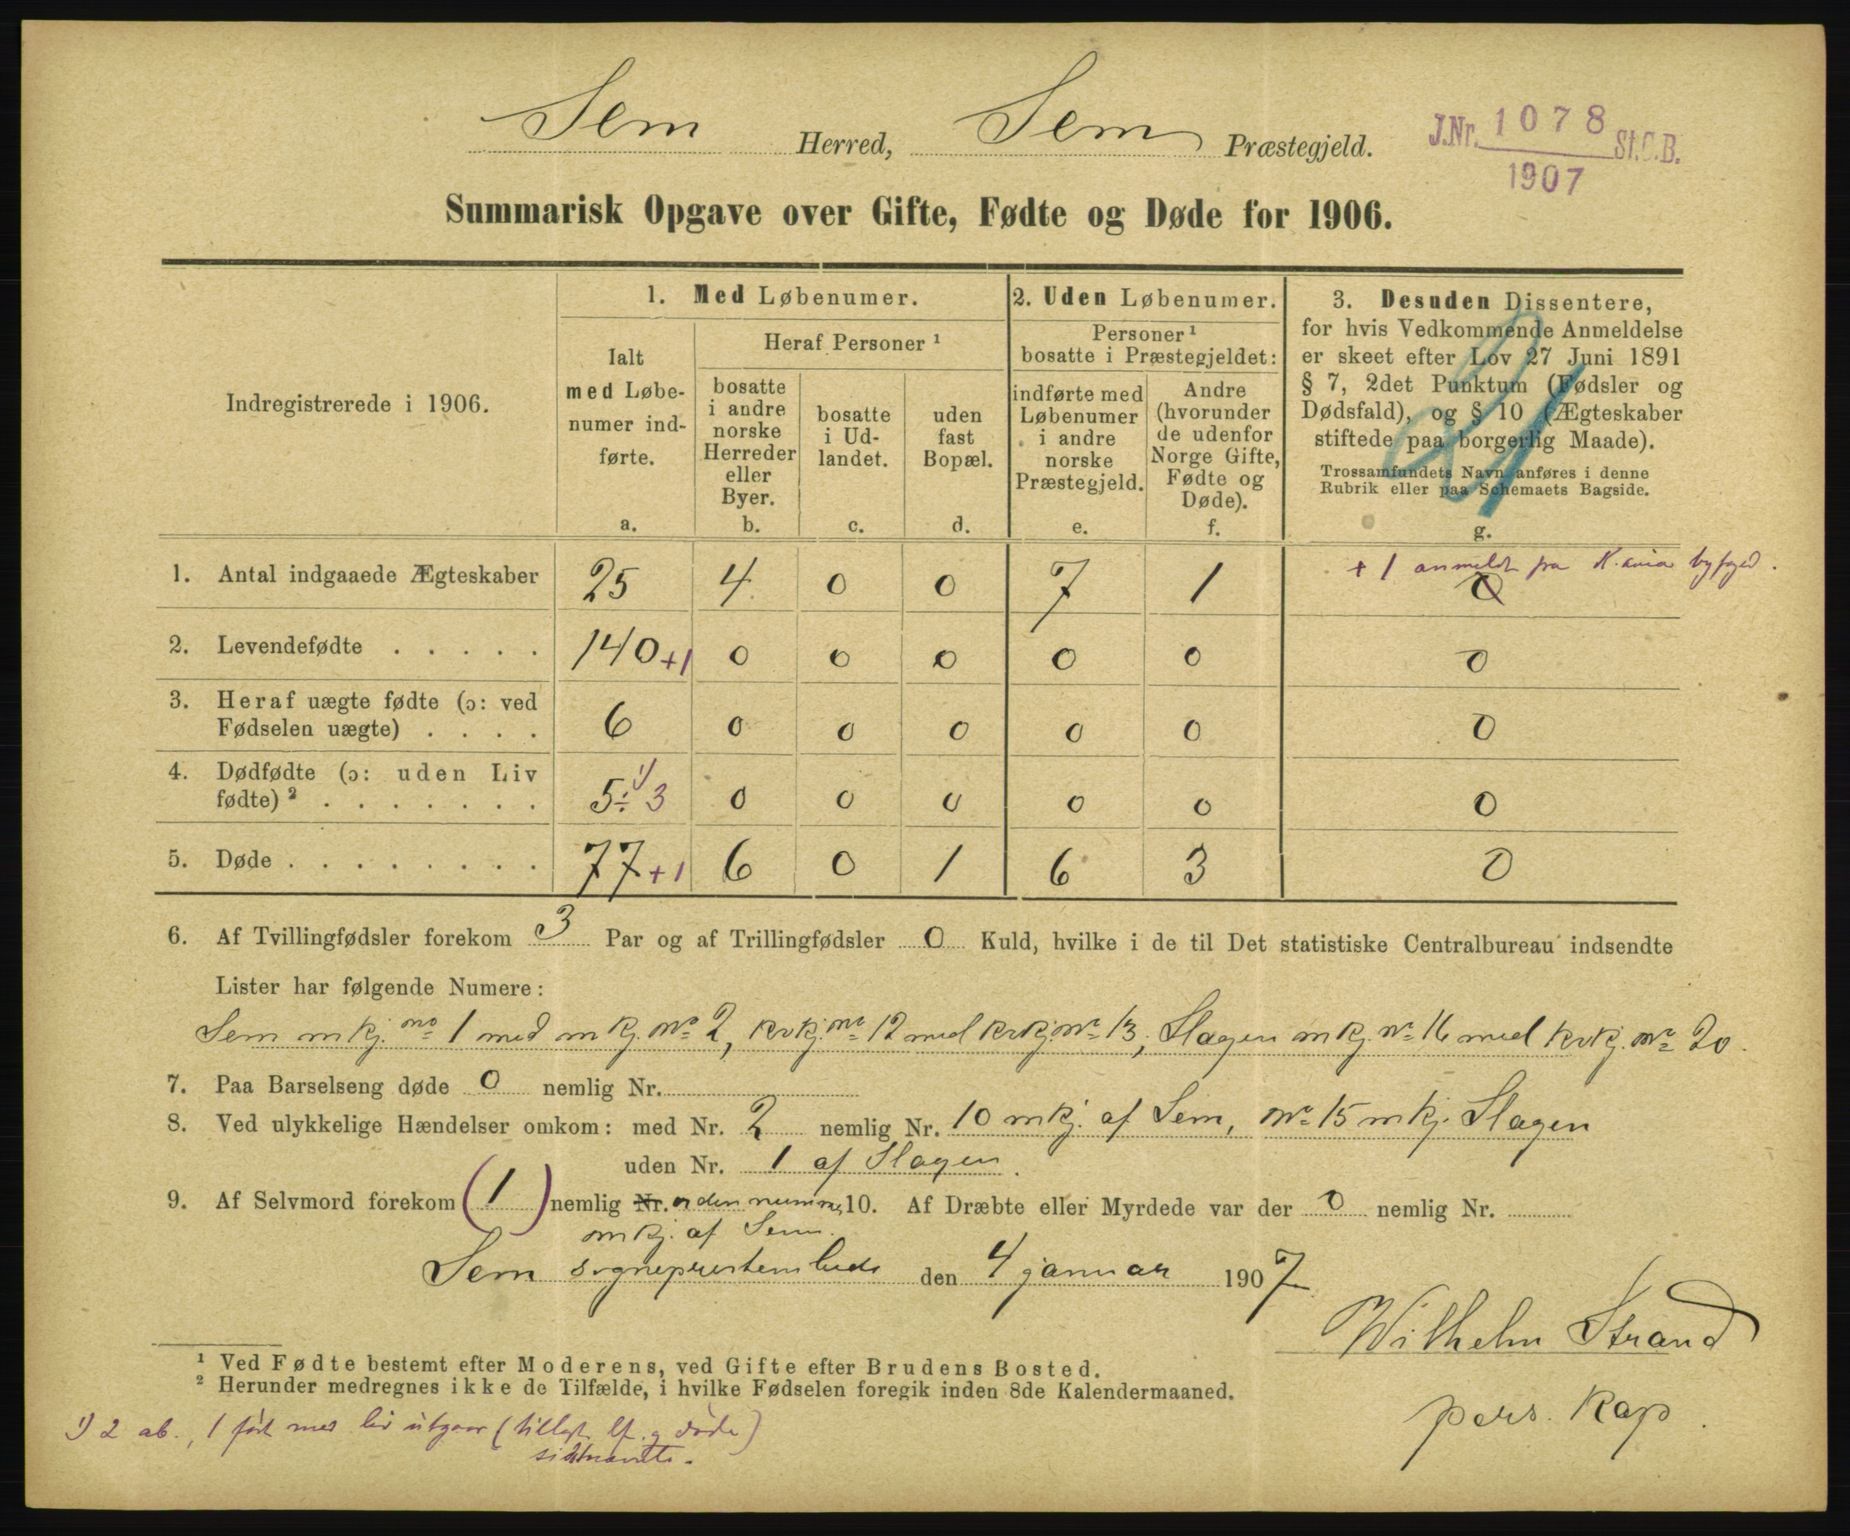 Sem Herred, Sem Præstegjeld.
J.Nr. 1078 St.C.B.
1907
Summarisk Opgave over Gifte, Fødte og Døde for 1906.
Indregistrerede i 1906.
1. Med Løbenumer.
Ialt
med Løbe-
numer ind-
førte.
a.
Heraf Personer ¹
bosatte
i andre
norske
Herreder
eller
Byer.
b.
bosatte
i Ud-
landet.
c.
uden
fast
Bopæl.
d.
2. Uden Løbenumer.
Personer ¹
bosatte i Præstegjeldet:
indførte med
Løbenumer
i andre
norske
Præstegjeld.
e.
Andre
(hvorunder
de udenfor
Norge Gifte,
Fødte og
Døde).
f.
3. Desuden Dissentere,
for hvis Vedkommende Anmeldelse
er skeet efter Lov 27 Juni 1891
§ 7, 2det Punktum (Fødsler og
Dødsfald), og § 10 (Ægteskaber
stiftede paa borgerlig Maade).
Trossamfundets Navn anføres i denne
Rubrik eller paa Schemaets Bagside.
g.
+ 1 anmeldt fra K.ania byfoged.
1. Antal indgaaede Ægteskaber 25 4 0 0 7 1 0
2. Levendefødte . . . . . 140+1 0 0 0 0 0 0
3. Heraf uægte fødte (ɔ: ved
Fødselen uægte) . . . . 6 0 0 0 0 0 0
4. Dødfødte (ɔ: uden Liv
fødte) ² . . . . . . . 5 ÷ 3 ¹) 0 0 0 0 0 0
5. Døde . . . . . . . . 77+1 6 0 1 6 3 0
6. Af Tvillingfødsler forekom 3 Par og af Trillingfødsler 0 Kuld, hvilke i de til Det statistiske Centralbureau indsendte
Lister har følgende Numere:
Sem mkj. no 1 med mkj. No 2, kvkj. nr 12 med kvkj nr 13, Slagen mkj. nr 16 med kvkj. nr 20.
7. Paa Barselseng døde 0 nemlig Nr.
8. Ved ulykkelige Hændelser omkom: med Nr. 2 nemlig Nr. 10 mkj. af Sem, nr 15 mkj. Slagen
uden Nr. 1 af Slagen.
9. Af Selvmord forekom (1) nemlig Nr. uden numme, 10. Af Dræbte eller Myrdede var der 0 nemlig Nr.
mkj. af Sem.
Sem den 4 januar 1907
Wilhelm Strand
pers. Kap.
¹ Ved Fødte bestemt efter Moderens, ved Gifte efter Brudens Bosted.
² Herunder medregnes ikke de Tilfælde, i hvilke Fødselen foregik inden 8de Kalendermaaned.
¹) 2 ab., 1 født med liv utgaar (tillagt lf. og døde)